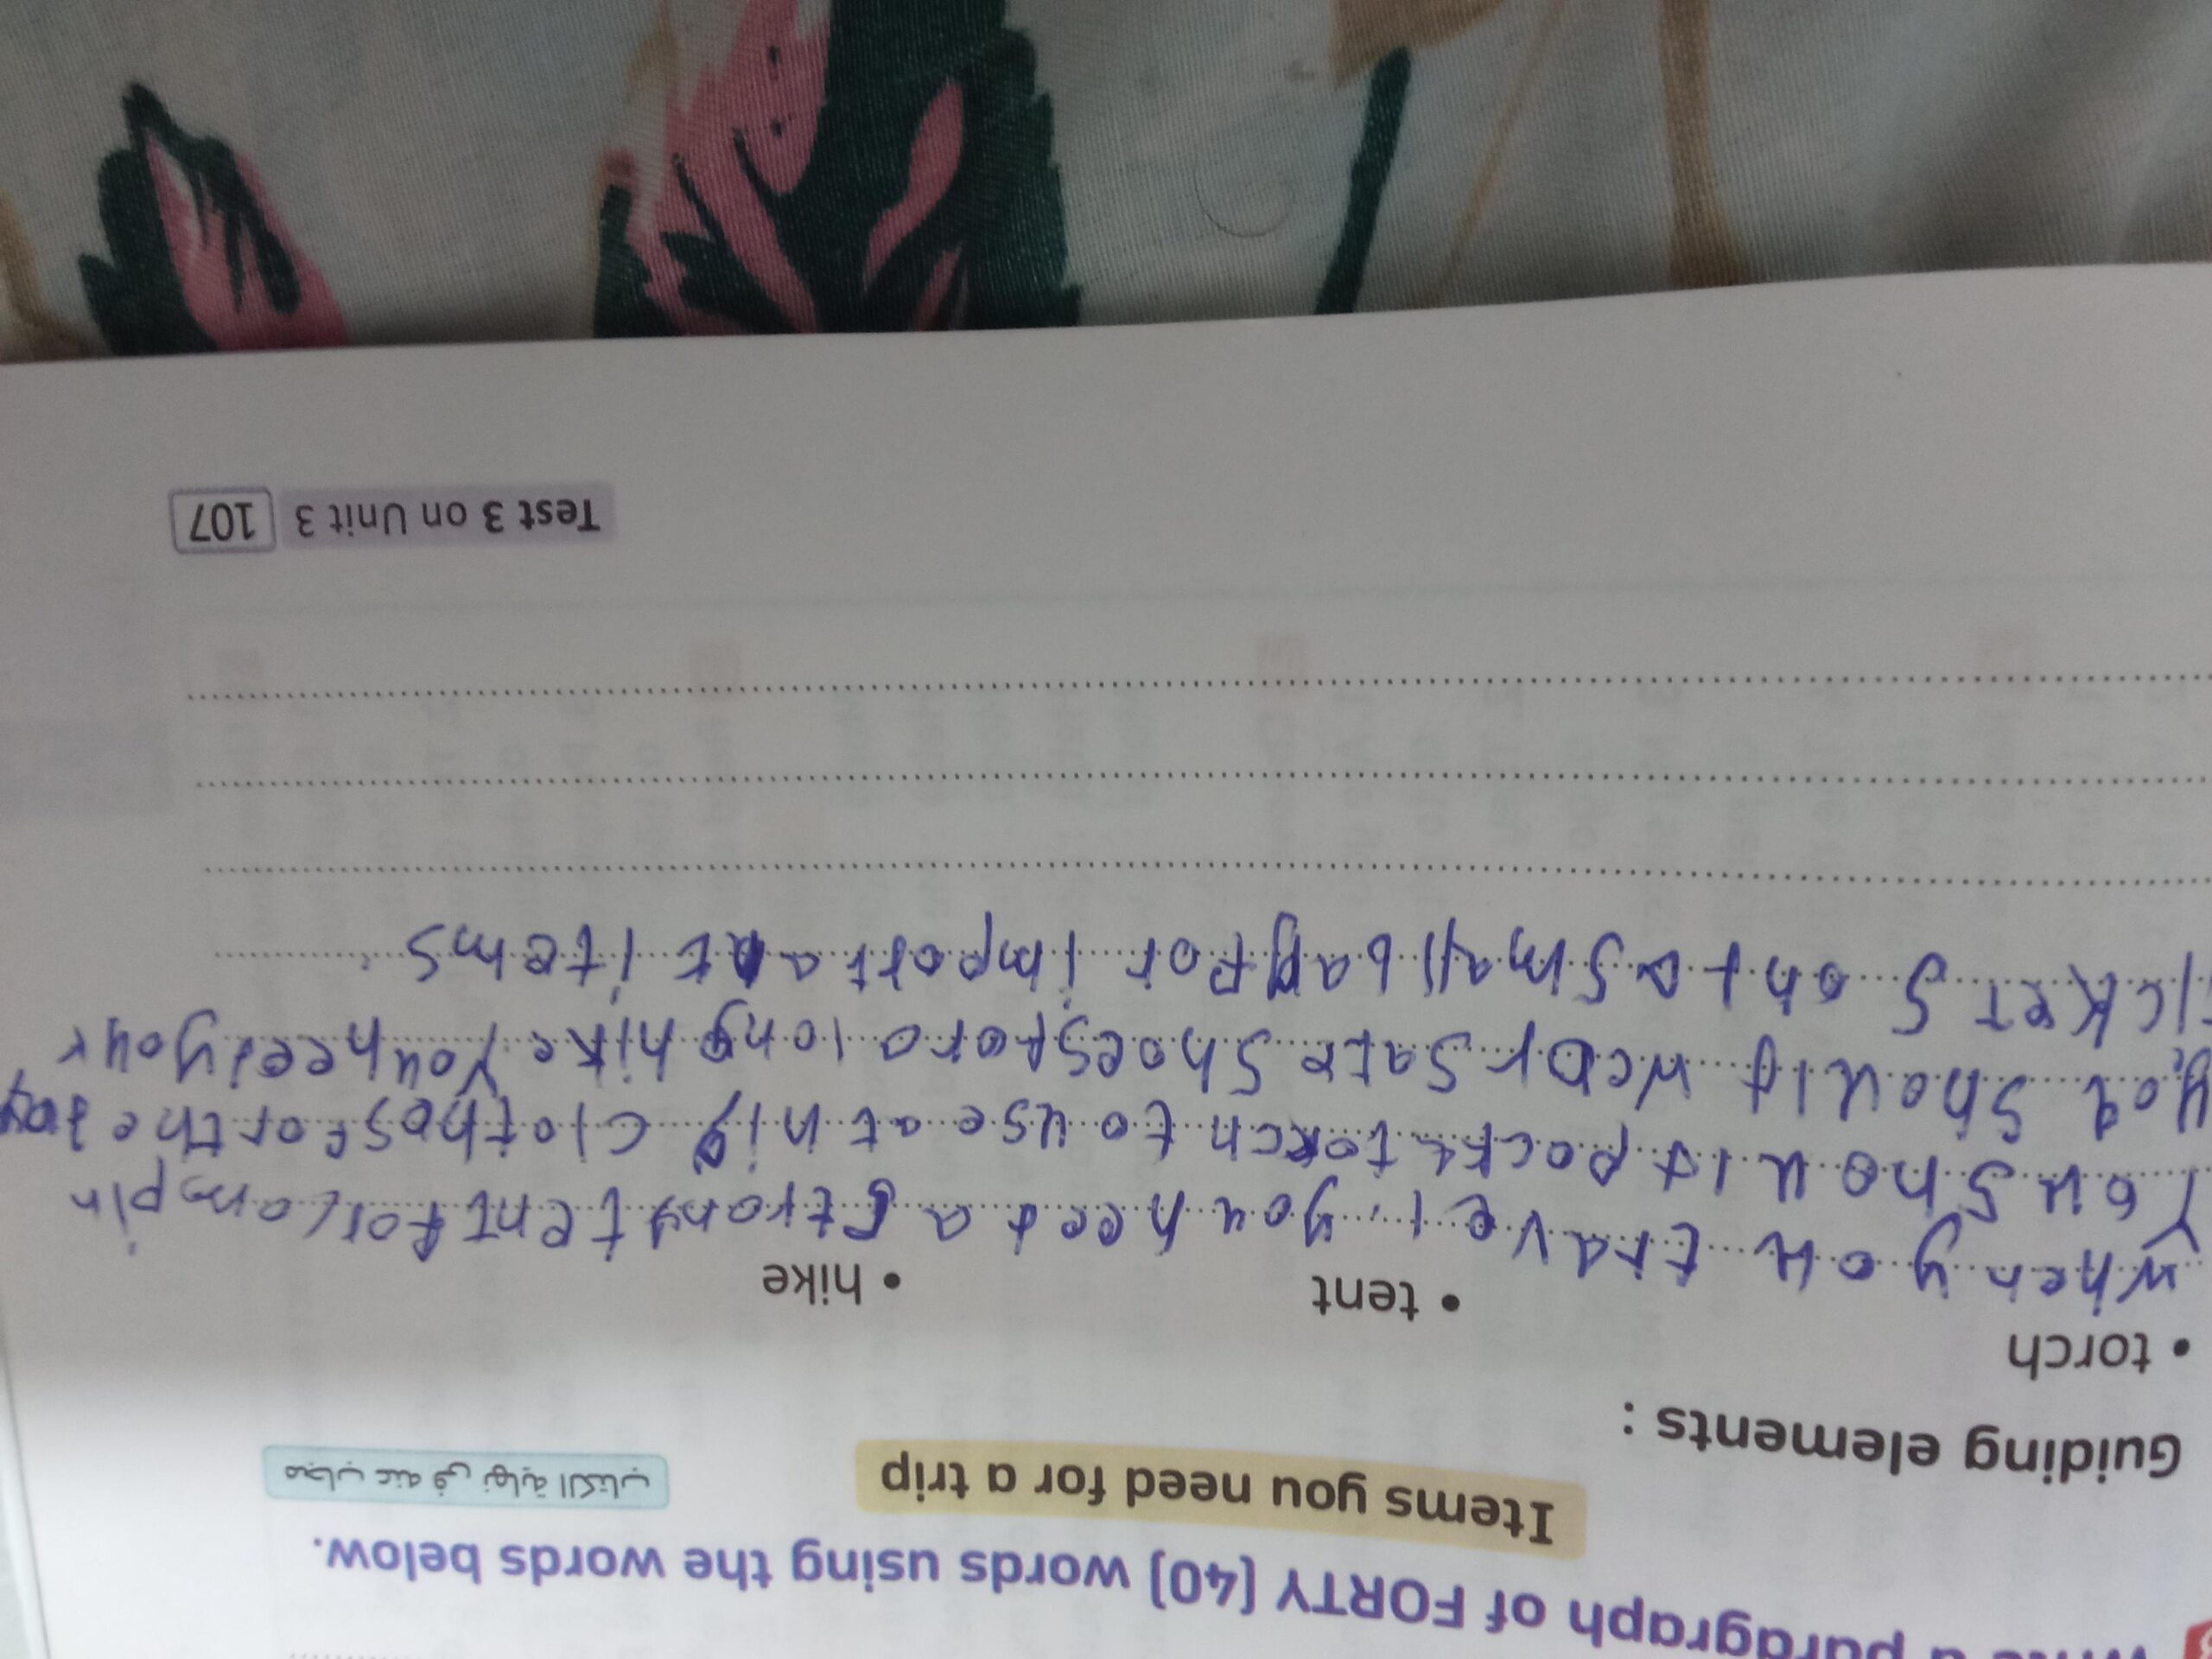 a paragraph of FORTY (40) words using the words below.
Items you need for a trip
مجاب عنه في نهاية الكتاب
Guiding elements :
• torch • tent • hike
when you travel, you need a strong tent for campin
You should pock a torch to use at nig clothes for the day
you should wear safe shoes for a long hike you need your
tickets and a small bag for important items
Test 3 on Unit 3 107